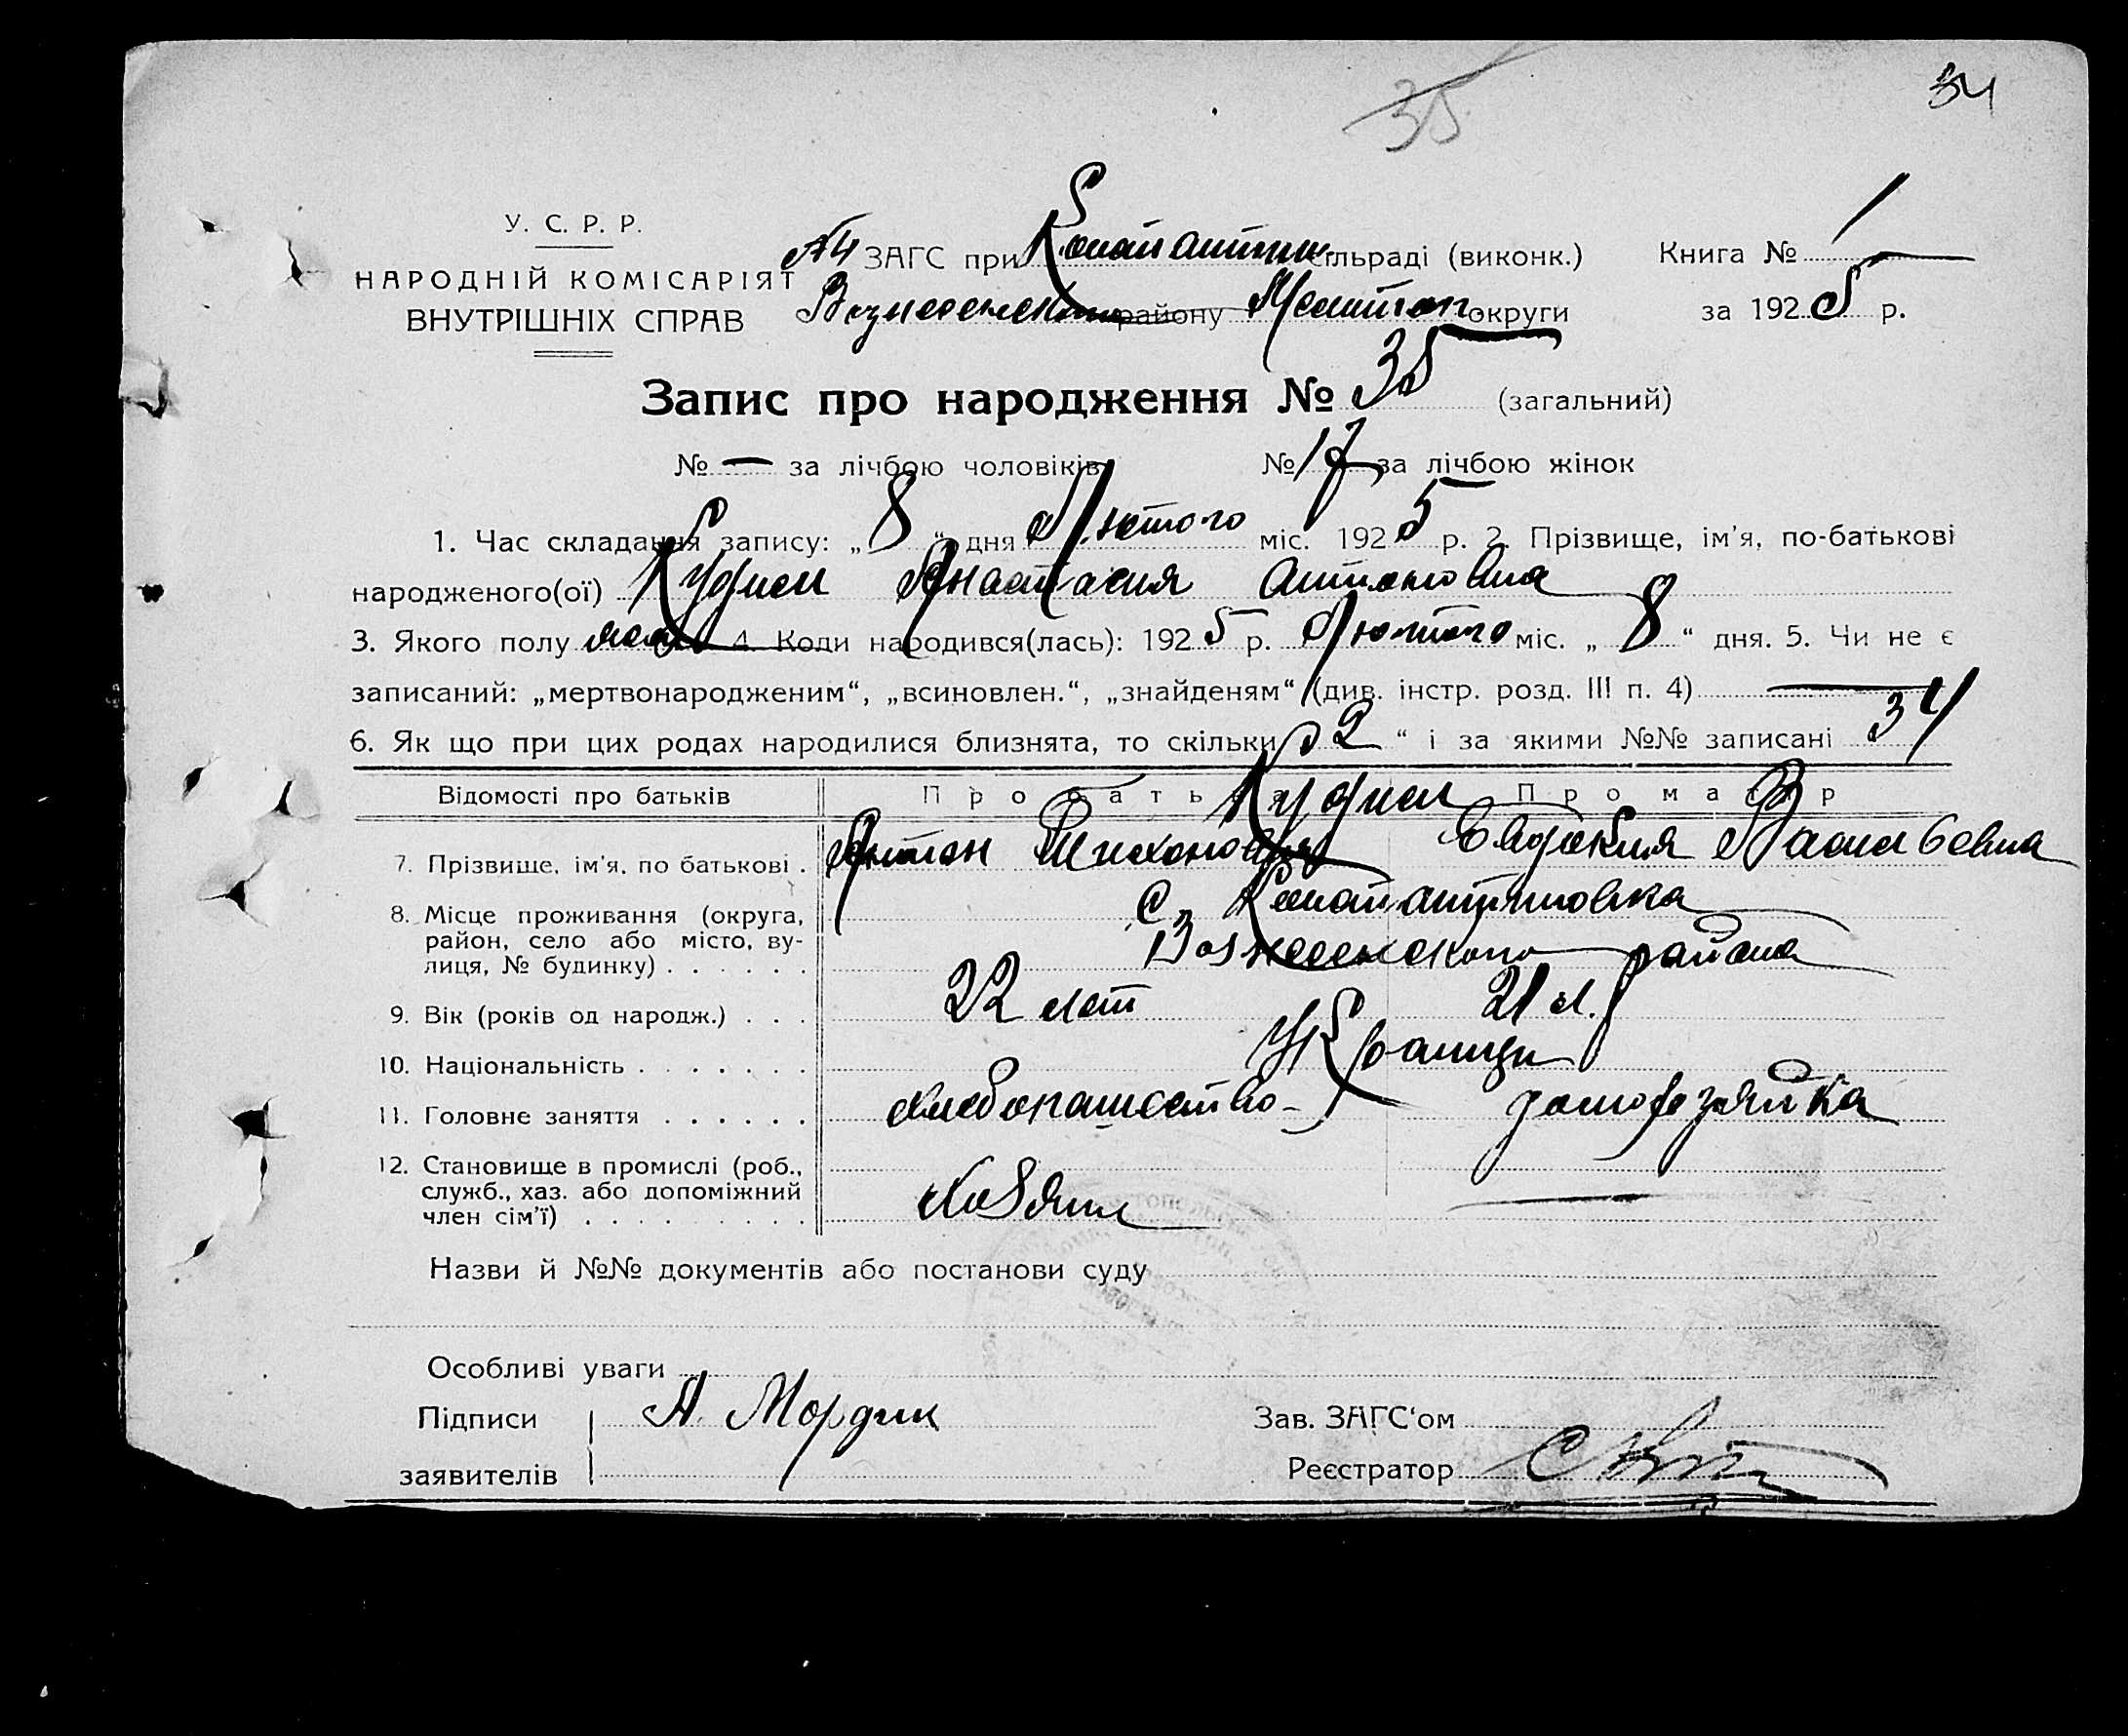 35
34
У. С. Р. Р.
НАРОДНІЙ КОМІСАРІЯТ
ВНУТРІШНІХ СПРАВ
№4 ЗАГС при Констинтин. сільраді (виконк.) Книга № 1
Вознесенськ району Меліитоп. округи за 1925 р.
Запис про народження № 35 (загальний)
№ — за лічбою чоловіків № 17 за лічбою жінок
1. Час складання запису: „8“ дня Лютого міс. 1925 р. 2. Прізвище, ім'я, по-батькові
народженого(ої) Анастасия Антоновна
3. Якого полу 4. Коли народився(лась): 1925 р. Лютого міс. „8“ дня. 5. Чи не є
записаний: „мертвонародженим“, „всиновлен.“, „знайденям“ (див. інстр. розд. III п. 4) —
6. Як що при цих родах народилися близнята, то скільки „2“ і за якими №№ записані 34
Відомості про батьків Про батька Про матір
7. Прізвище, ім'я, по батькові . Антон Тихонович Евдокия Васильевна
8. Місце проживання (округа, С. Константиновка
район, село або місто, ву-
лиця, № будинку) . . . . . . Вознесенского района
9. Вік (років од народж.) . . . 22 лет 21 л.
10. Національність . . . . . . . Украинци
11. Головне заняття . . . . . . хлебопашество - домохозяйка
12. Становище в промислі (роб.,
служб., хаз. або допоміжний
член сім'ї) . . . . . . . . . хозяин —
Назви й №№ документів або постанови суду
Особливі уваги
Підписи А. Мордик Зав. ЗАГС'ом
заявителів Реєстратор